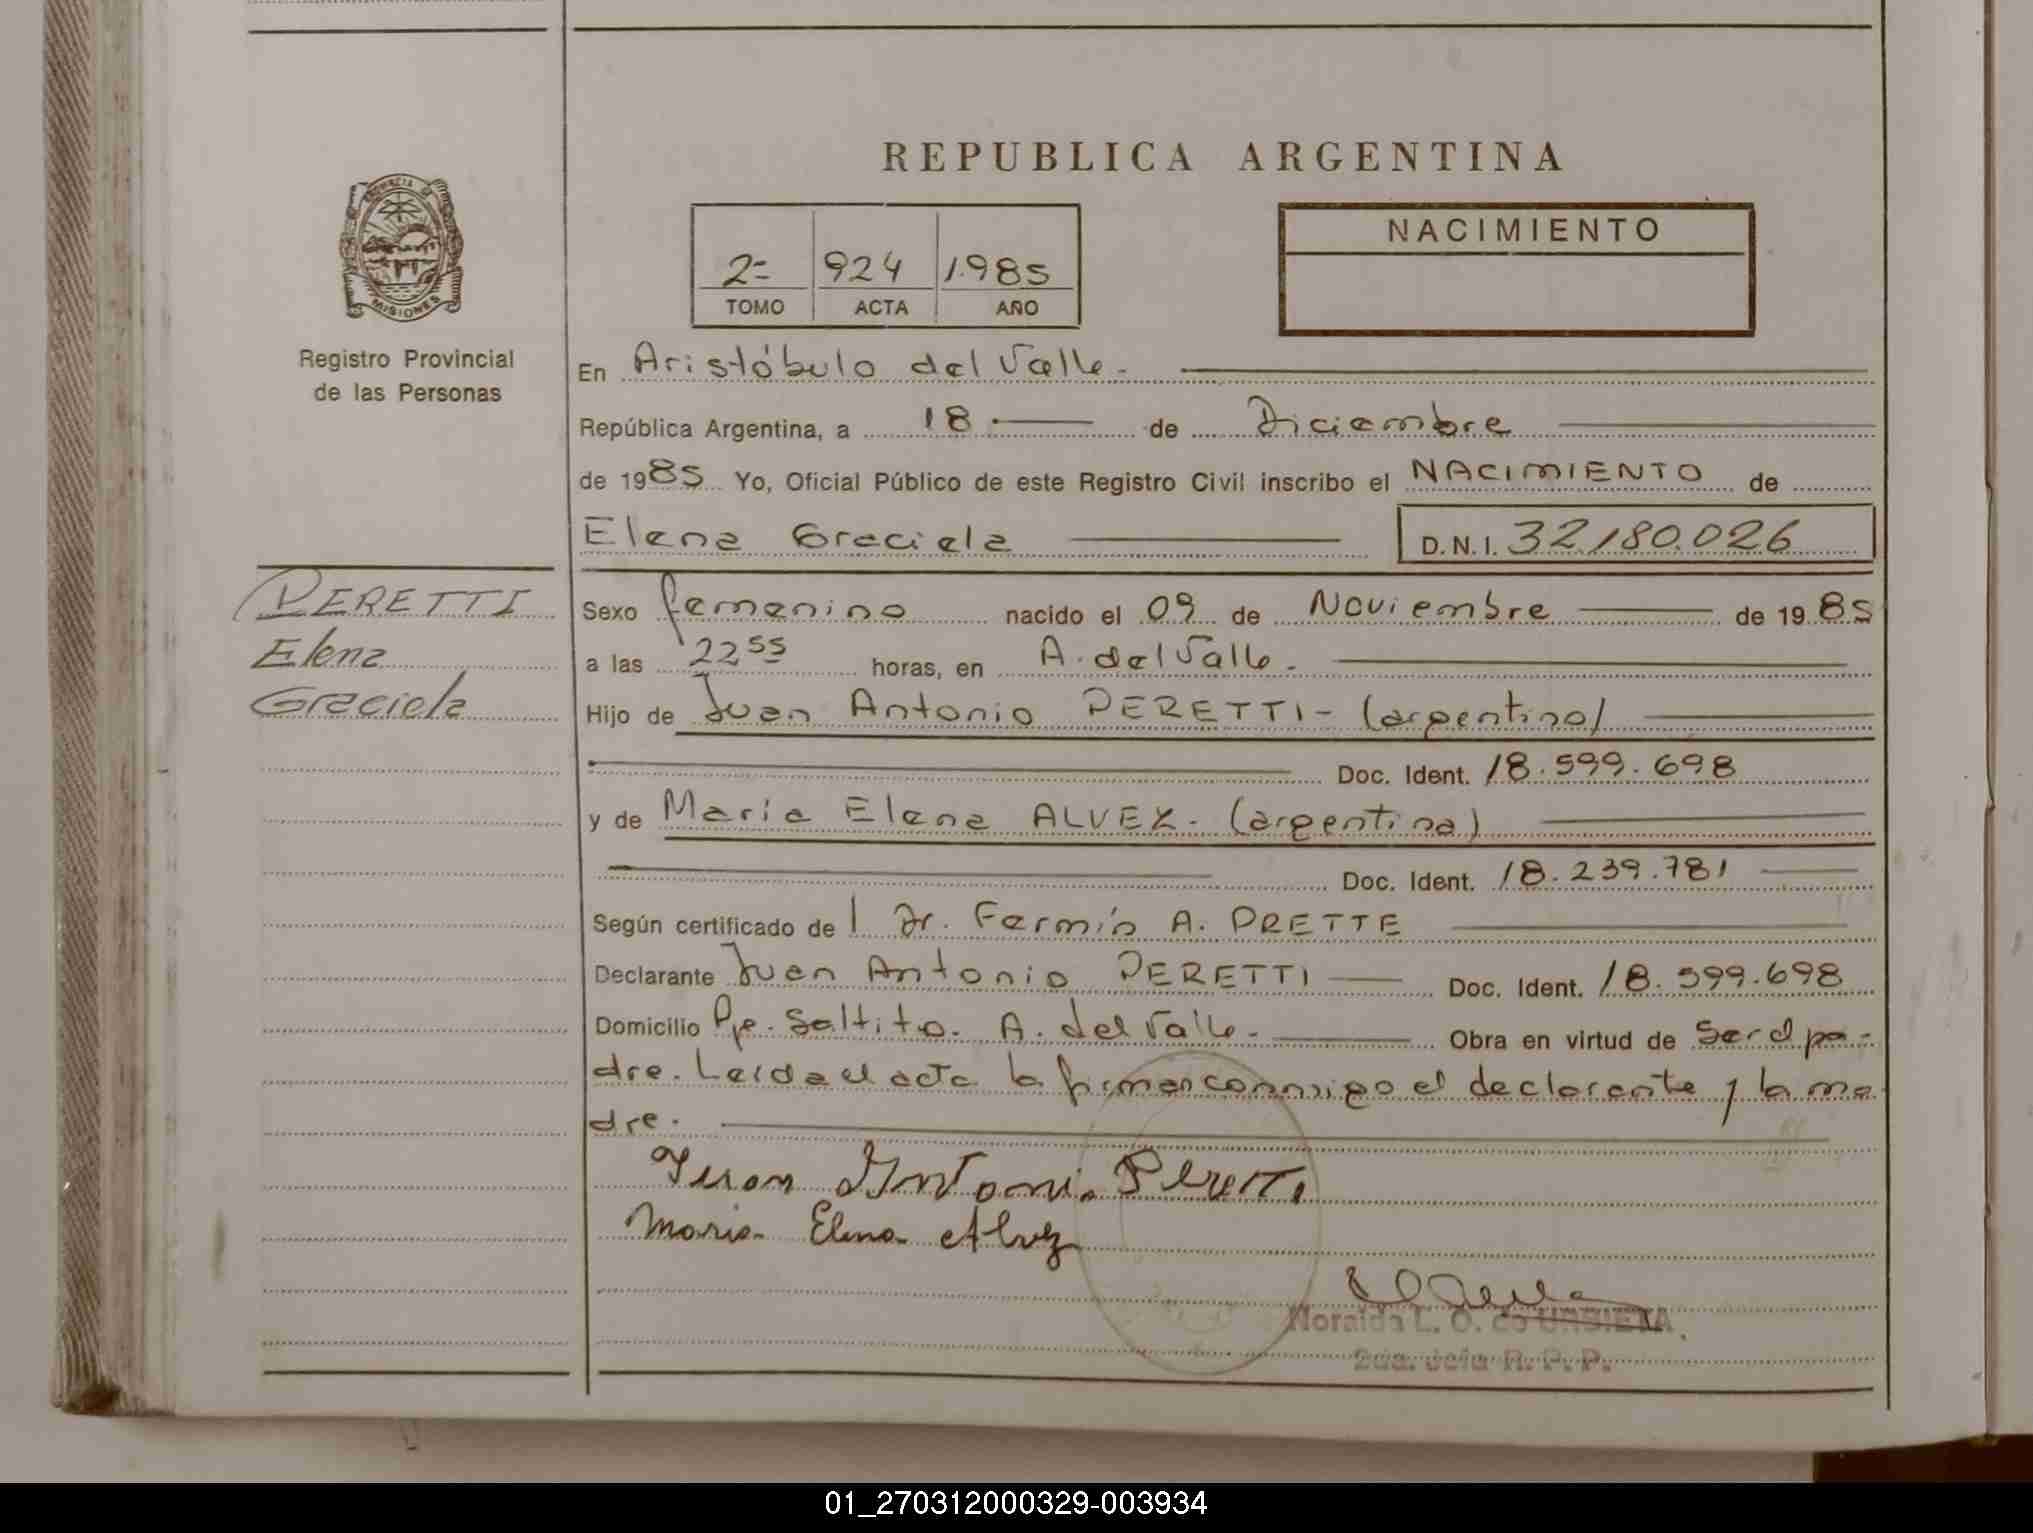 REPUBLICA ARGENTINA
PROVINCIA DE
MISIONES
Registro Provincial
de las Personas
2= 924 1.985
TOMO ACTA AÑO
NACIMIENTO
En Aristóbulo del Valle.
República Argentina, a 18 de Diciembre
de 1985 Yo, Oficial Público de este Registro Civil inscribo el NACIMIENTO de
Elena Graciela D.N.I. 32.180.026
PERETTI
Elena
Graciela
Sexo femenino nacido el 09 de Noviembre de 1985
a las 22 55 horas, en A. del Valle.
Hijo de Juan Antonio PERETTI- (argentino)
Doc. Ident. 18.599.698
y de María Elena ALVEZ. (argentina)
Doc. Ident. 18.239.781
Según certificado de l Dr. Fermín A. PRETTE
Declarante Juan Antonio PERETTI Doc. Ident. 18.599.698
Domicilio Pje. Saltito. A. del Valle. Obra en virtud de ser el pa-
dre. Leída el acta la firman conmigo el declarante y la ma
dre.
Juan Antonio Peretti
Maria Elena Alvez
Noraida L. O. de URBIETA
2da. Jefa R. P. P.
01_270312000329-003934